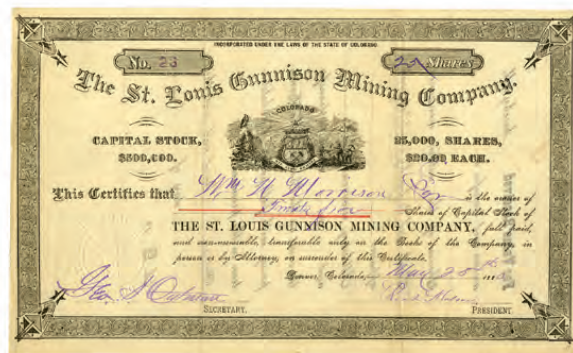 INCORPORATED UNDER THE LAWS OF THE STATE OF COLORADO
No. 23
25 Shares
The St. Louis Gunnison Mining Company.
COLORADO
CAPITAL STOCK,
$500,000.
25,000, SHARES,
$20.00 EACH.
This Certifies that Wm H is the owner of
Twenty five Shares of Capital Stock of
THE ST. LOUIS GUNNISON MINING COMPANY, full paid,
and non-assessable, transferable only on the Books of the Company, in
person or by Attorney, on surrender of this Certificate.
Denver, Colorado, May 25th 188
Geo. J.
SECRETARY.
PRESIDENT.